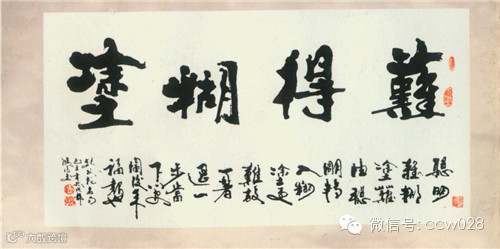 難得糊塗
聰明
難糊
塗難
由聰
明轉
入糊
塗更
難放
一著
退一
步當
下安
圖後來
福報
微信号: ccw028